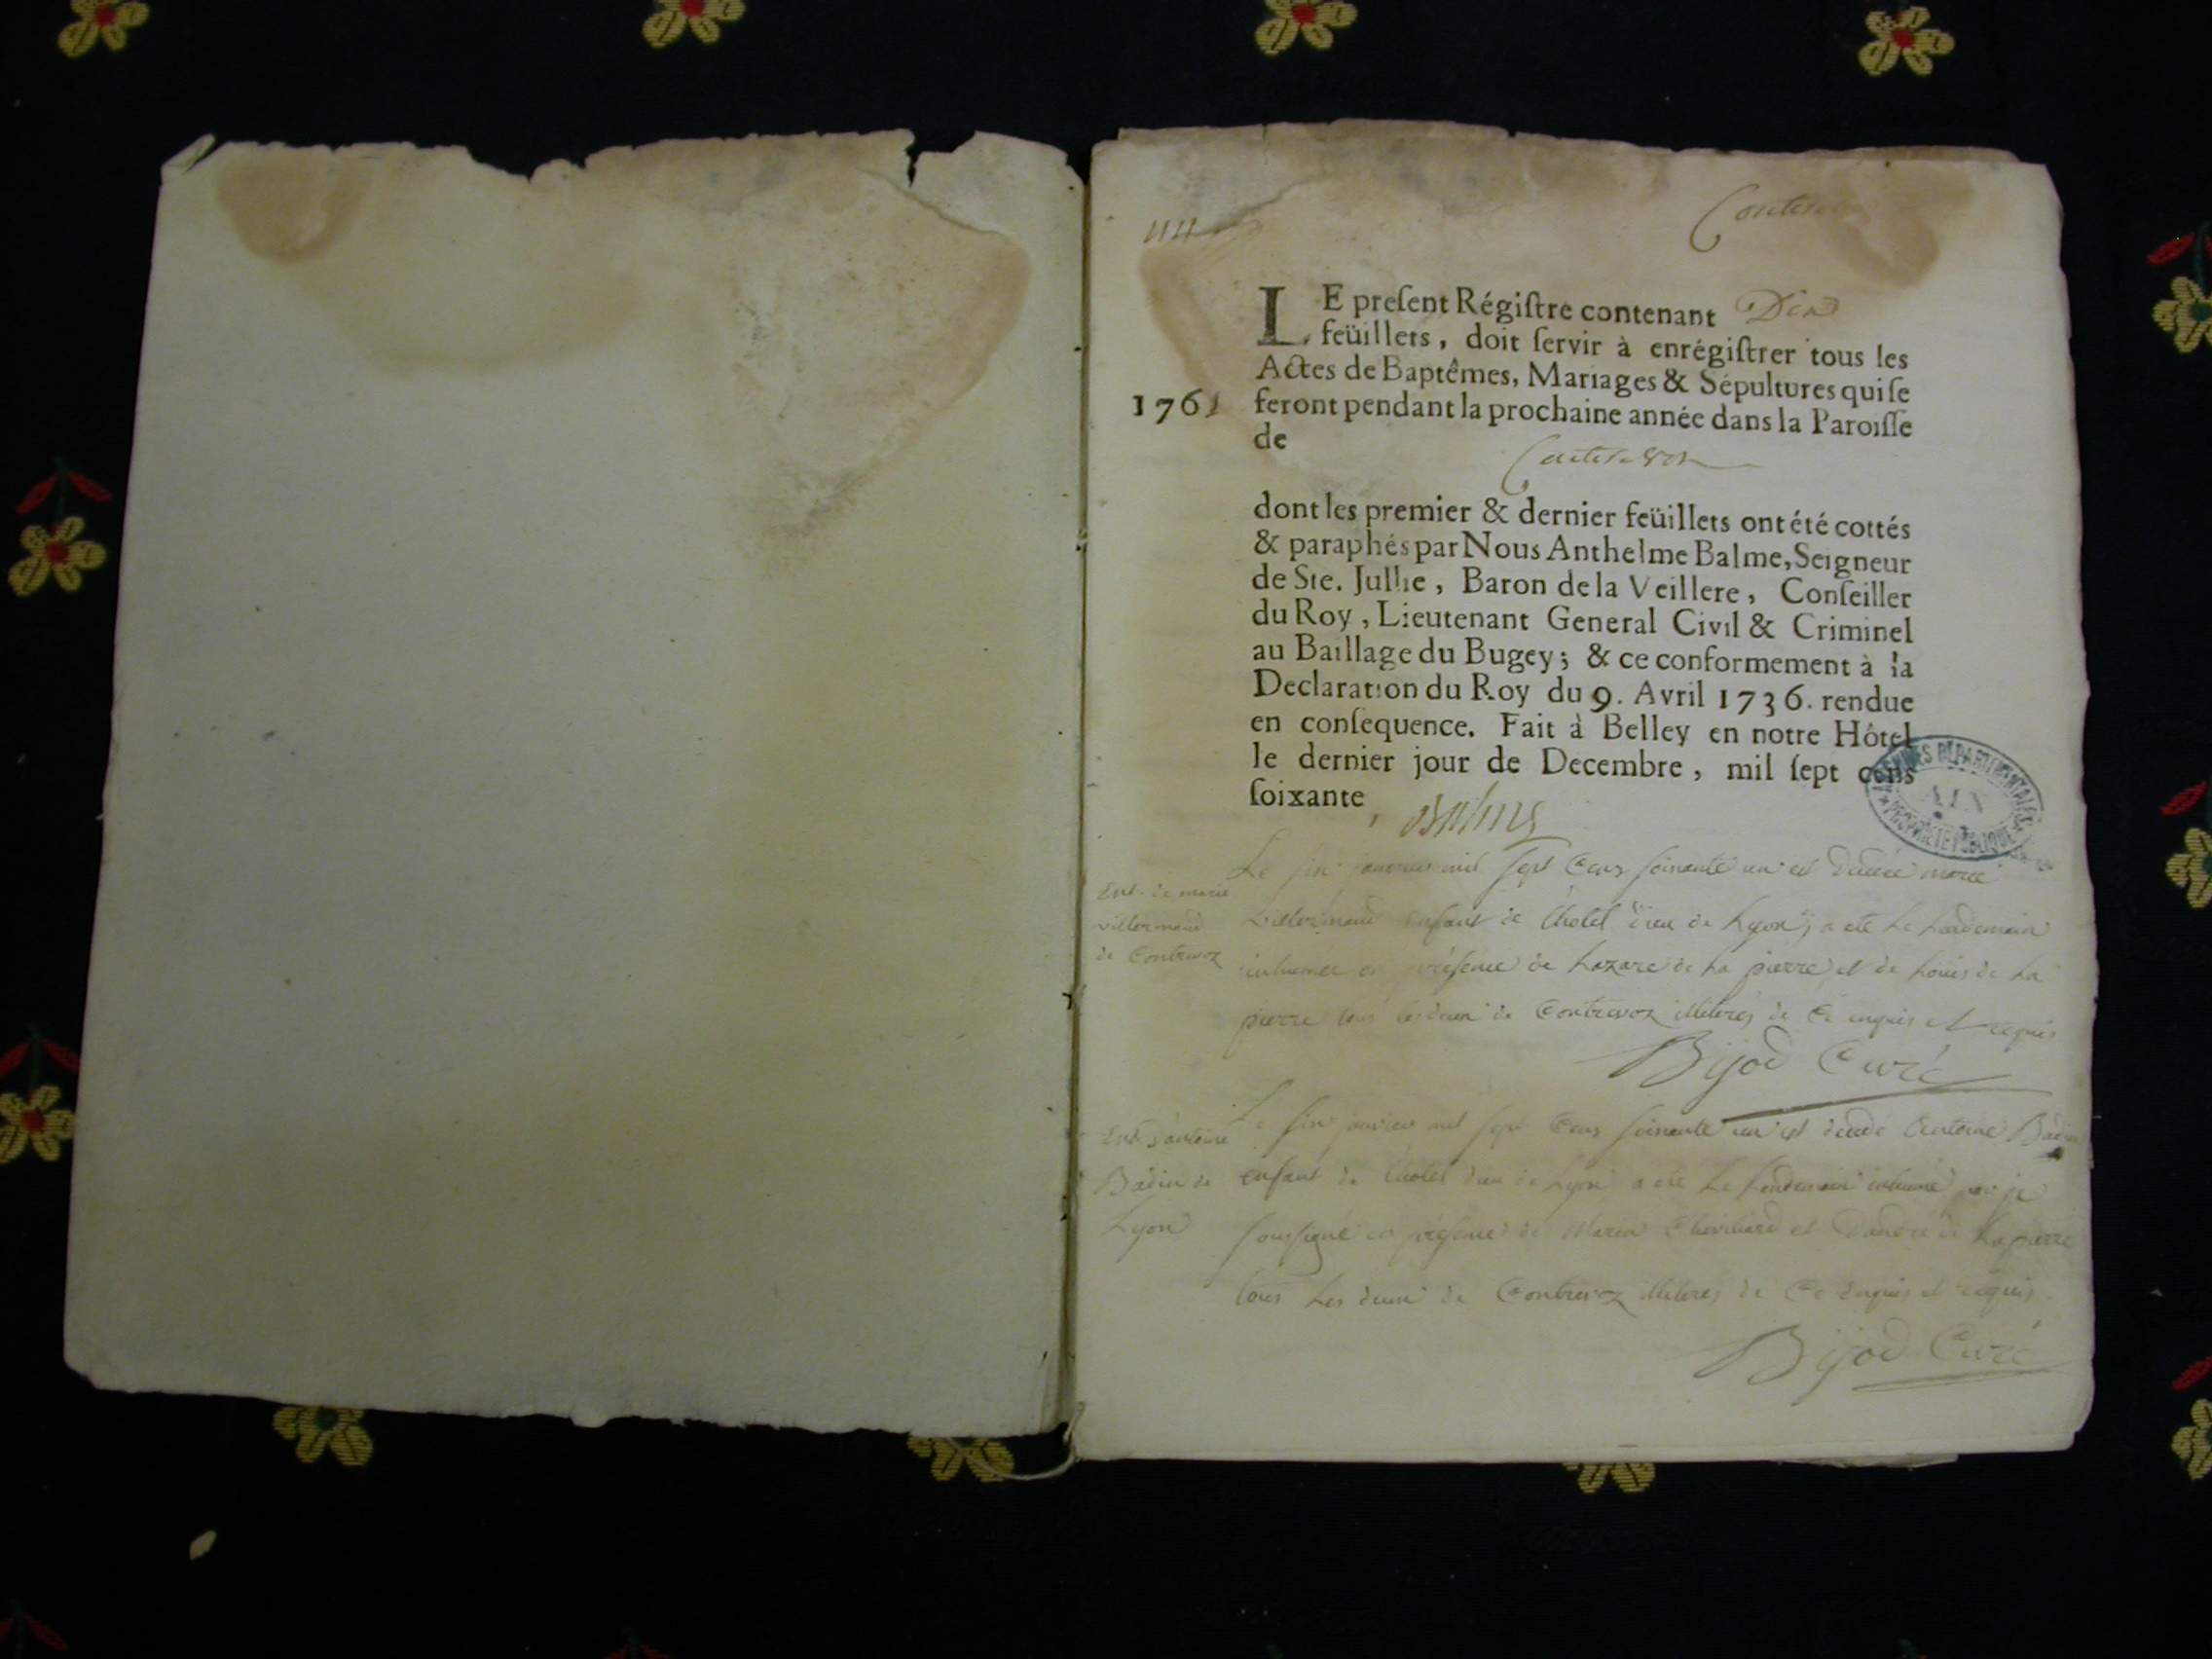 Contrevoz
LE preſent Régiſtre contenant Dix
feüillets, doit ſervir à enrégiſtrer tous les
Actes de Baptêmes, Mariages & Sépultures qui ſe
1761 feront pendant la prochaine année dans la Paroiſſe
de
Contrevoz
dont les premier & dernier feüillets ont été cottés
& paraphés par Nous Anthelme Balme, Seigneur
de Ste. Jullie, Baron de la Veillere, Conſeiller
du Roy, Lieutenant General Civil & Criminel
au Baillage du Bugey; & ce conformement à la
Declaration du Roy du 9. Avril 1736. rendue
en conſequence. Fait à Belley en notre Hôtel
le dernier jour de Decembre, mil ſept cens
ſoixante, Balme
ARCHIVES DEPARTEMENTALES
AIN
PROPRIETE PUBLIQUE
Ent. de marie
villermand
de Contrevoz
Le six janvier mil sept Cens soixante un est décédé marie
villermand enfant de L'hotel dieu de Lyon, a eté Le Lendemain
inhumée en présence de Lazare de La pierre, et de Louis de La
pierre tous les deux de Contrevoz illiteres de Ce enquis et requis
Bijod Curé
Ent. d'antoine
Badin de
Lyon
Le six janvier mil sept Cens soixante un est décédé Antoine Badin
enfant de L'hotel dieu de Lyon a eté Le Lendemain inhumé par je
soussigné en présence de et de Lapierre
tous Les deux de Contrevoz illiteres de Ce Enquis et requis.
Bijod Curé